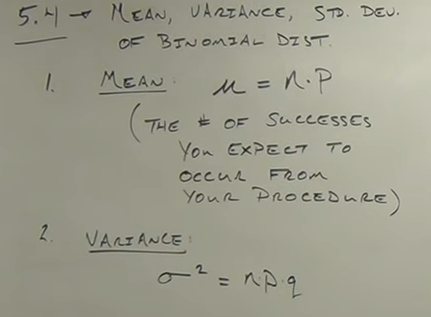 5.4 → MEAN, VARIANCE, STD. DEV.
OF BINOMIAL DIST.
1. MEAN: μ = n·P
(THE # OF SUCCESSES
YOU EXPECT TO
OCCUR FROM
YOUR PROCEDURE)
2. VARIANCE:
σ² = n·p·q